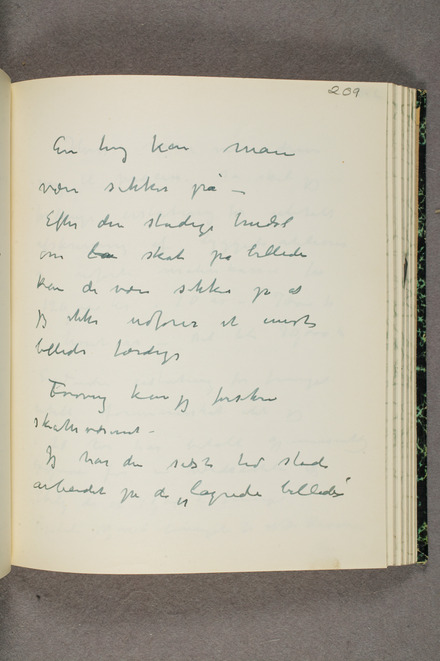 209
En ting kan man
være sikker på —
Efter den stadige trudsel
om skat på billeder
kan de være sikker på at
jeg ikke udfører et eneste
billede færdigt
kan jeg forsikre
skattevæsenet —
Jeg har den sidste tid stadi
arbeidet på de „lagrede billeder"